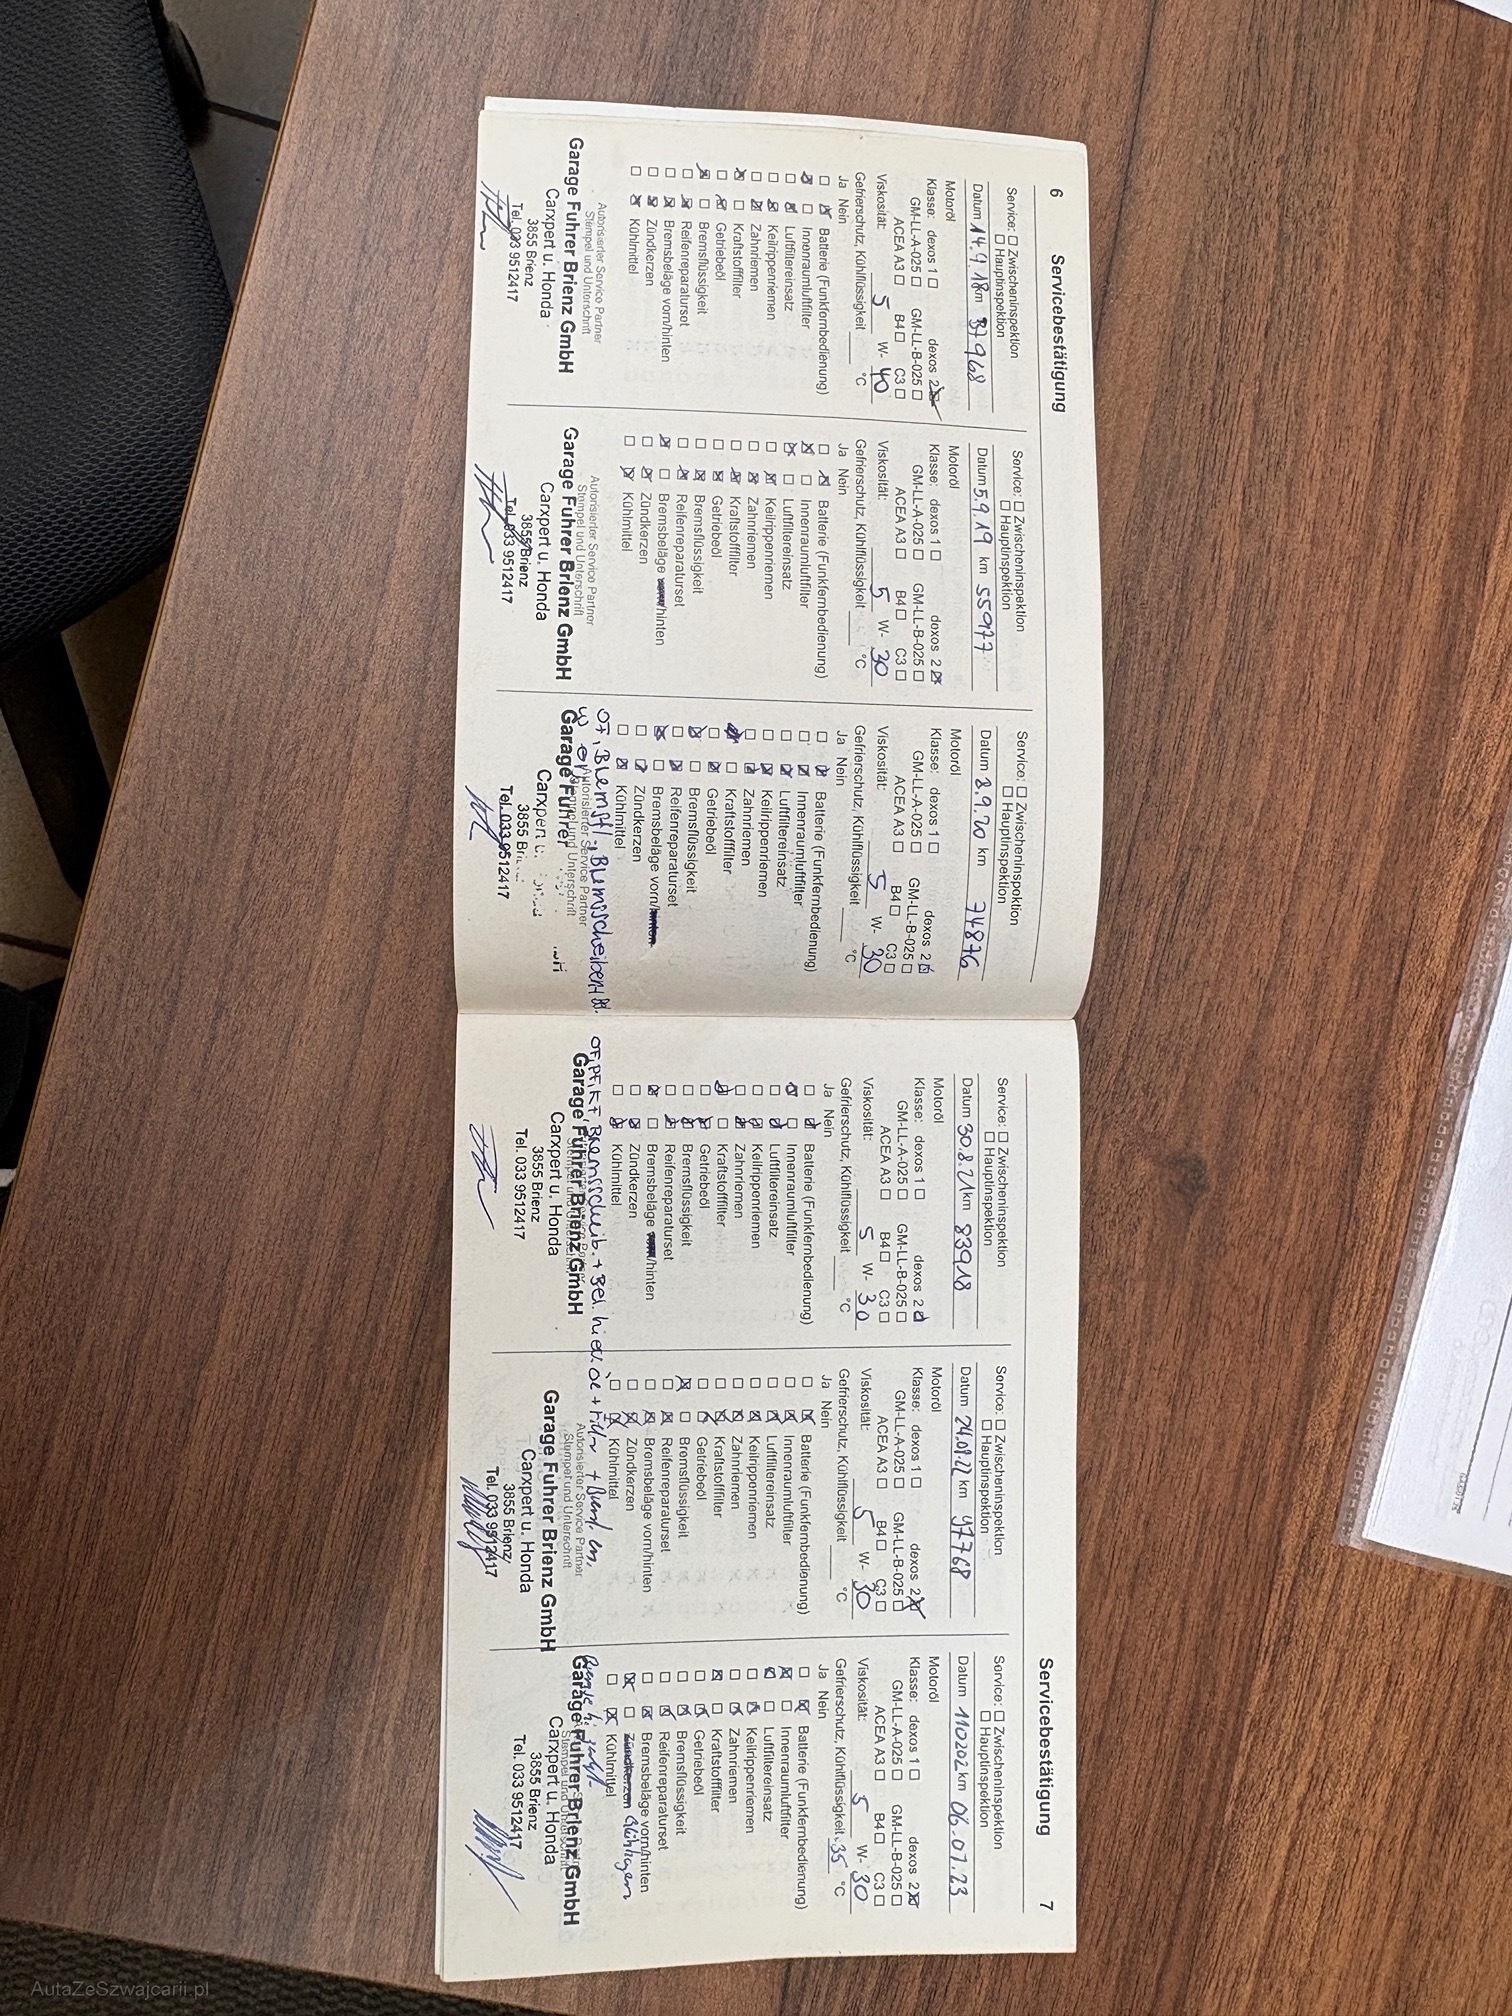 6
Servicebestätigung
Service: ☐ Zwischeninspektion
☐ Hauptinspektion
Datum 14.9.18 km 37968
Motoröl
Klasse: dexos 1 ☐ dexos 2 ☒
GM-LL-A-025 ☐ GM-LL-B-025 ☐
ACEA A3 ☐ B4 ☐ C3 ☐
Viskosität: 5 W- 40
Gefrierschutz, Kühlflüssigkeit °C
Ja Nein
☐ ☒ Batterie (Funkfernbedienung)
☒ ☐ Innenraumluftfilter
☐ ☒ Luftfiltereinsatz
☐ ☒ Keilrippenriemen
☐ ☒ Zahnriemen
☒ ☐ Kraftstofffilter
☐ ☒ Getriebeöl
☒ ☐ Bremsflüssigkeit
☐ ☒ Reifenreparaturset
☐ ☒ Bremsbeläge vorn/hinten
☐ ☒ Zündkerzen
☐ ☒ Kühlmittel
Autorisierter Service Partner
Stempel und Unterschrift
Garage Fuhrer Brienz GmbH
Carxpert u. Honda
3855 Brienz
Tel. 033 9512417
Service: ☐ Zwischeninspektion
☐ Hauptinspektion
Datum 5.9.19 km 55977
Motoröl
Klasse: dexos 1 ☐ dexos 2 ☒
GM-LL-A-025 ☐ GM-LL-B-025 ☐
ACEA A3 ☐ B4 ☐ C3 ☐
Viskosität: 5 W- 30
Gefrierschutz, Kühlflüssigkeit °C
Ja Nein
☐ ☒ Batterie (Funkfernbedienung)
☒ ☐ Innenraumluftfilter
☒ ☐ Luftfiltereinsatz
☐ ☒ Keilrippenriemen
☐ ☒ Zahnriemen
☐ ☒ Kraftstofffilter
☐ ☒ Getriebeöl
☐ ☒ Bremsflüssigkeit
☐ ☒ Reifenreparaturset
☒ ☐ Bremsbeläge /hinten
☐ ☒ Zündkerzen
☐ ☒ Kühlmittel
Autorisierter Service Partner
Stempel und Unterschrift
Garage Fuhrer Brienz GmbH
Carxpert u. Honda
3855 Brienz
Tel. 033 9512417
Service: ☐ Zwischeninspektion
☐ Hauptinspektion
Datum 8.9.20 km 74876
Motoröl
Klasse: dexos 1 ☐ dexos 2 ☒
GM-LL-A-025 ☐ GM-LL-B-025 ☐
ACEA A3 ☐ B4 ☐ C3 ☐
Viskosität: 5 W- 30
Gefrierschutz, Kühlflüssigkeit °C
Ja Nein
☐ ☒ Batterie (Funkfernbedienung)
☐ ☒ Innenraumluftfilter
☐ ☒ Luftfiltereinsatz
☐ ☒ Keilrippenriemen
☐ ☒ Zahnriemen
☒ ☐ Kraftstofffilter
☐ ☒ Getriebeöl
☒ ☐ Bremsflüssigkeit
☐ ☒ Reifenreparaturset
☒ ☐ Bremsbeläge vorn/hinten
☐ ☒ Zündkerzen
☐ ☒ Kühlmittel
OF, Bremsfl., Bremsscheiben
Autorisierter Service Partner
Stempel und Unterschrift
Garage Fuhrer
3855
Tel. 033 9512417
Servicebestätigung
7
Service: ☐ Zwischeninspektion
☐ Hauptinspektion
Datum 30.8.21 km 83918
Motoröl
Klasse: dexos 1 ☐ dexos 2 ☒
GM-LL-A-025 ☐ GM-LL-B-025 ☐
ACEA A3 ☐ B4 ☐ C3 ☐
Viskosität: 5 W- 30
Gefrierschutz, Kühlflüssigkeit °C
Ja Nein
☐ ☒ Batterie (Funkfernbedienung)
☒ ☐ Innenraumluftfilter
☐ ☒ Luftfiltereinsatz
☐ ☒ Keilrippenriemen
☐ ☒ Zahnriemen
☒ ☐ Kraftstofffilter
☐ ☒ Getriebeöl
☐ ☒ Bremsflüssigkeit
☐ ☒ Reifenreparaturset
☒ ☐ Bremsbeläge /hinten
☐ ☒ Zündkerzen
☐ ☒ Kühlmittel
OF, PF, KF, Bremsscheib. + Bel. hi
Garage Fuhrer Brienz GmbH
Carxpert u. Honda
3855 Brienz
Tel. 033 9512417
Service: ☐ Zwischeninspektion
☐ Hauptinspektion
Datum 24.09.22 km 97768
Motoröl
Klasse: dexos 1 ☐ dexos 2 ☒
GM-LL-A-025 ☐ GM-LL-B-025 ☐
ACEA A3 ☐ B4 ☐ C3 ☐
Viskosität: 5 W- 30
Gefrierschutz, Kühlflüssigkeit °C
Ja Nein
☐ ☒ Batterie (Funkfernbedienung)
☐ ☒ Innenraumluftfilter
☐ ☒ Luftfiltereinsatz
☐ ☒ Keilrippenriemen
☐ ☒ Zahnriemen
☐ ☒ Kraftstofffilter
☐ ☒ Getriebeöl
☒ ☐ Bremsflüssigkeit
☐ ☒ Reifenreparaturset
☐ ☒ Bremsbeläge vorn/hinten
☐ ☒ Zündkerzen
☐ ☒ Kühlmittel
Autorisierter Service Partner
Stempel und Unterschrift
Garage Fuhrer Brienz GmbH
Carxpert u. Honda
3855 Brienz
Tel. 033 9512417
Service: ☐ Zwischeninspektion
☐ Hauptinspektion
Datum 110202 km 06.07.23
Motoröl
Klasse: dexos 1 ☐ dexos 2 ☒
GM-LL-A-025 ☐ GM-LL-B-025 ☐
ACEA A3 ☐ B4 ☐ C3 ☐
Viskosität: 5 W- 30
Gefrierschutz, Kühlflüssigkeit -35 °C
Ja Nein
☐ ☒ Batterie (Funkfernbedienung)
☒ ☐ Innenraumluftfilter
☒ ☐ Luftfiltereinsatz
☐ ☒ Keilrippenriemen
☐ ☒ Zahnriemen
☒ ☐ Kraftstofffilter
☐ ☒ Getriebeöl
☐ ☒ Bremsflüssigkeit
☐ ☒ Reifenreparaturset
☐ ☒ Bremsbeläge vorn/hinten
☒ ☐ Zündkerzen
☐ ☒ Kühlmittel
Garage Fuhrer Brienz GmbH
Carxpert u. Honda
3855 Brienz
Tel. 033 9512417
AutaZeSzwajcarii.pl